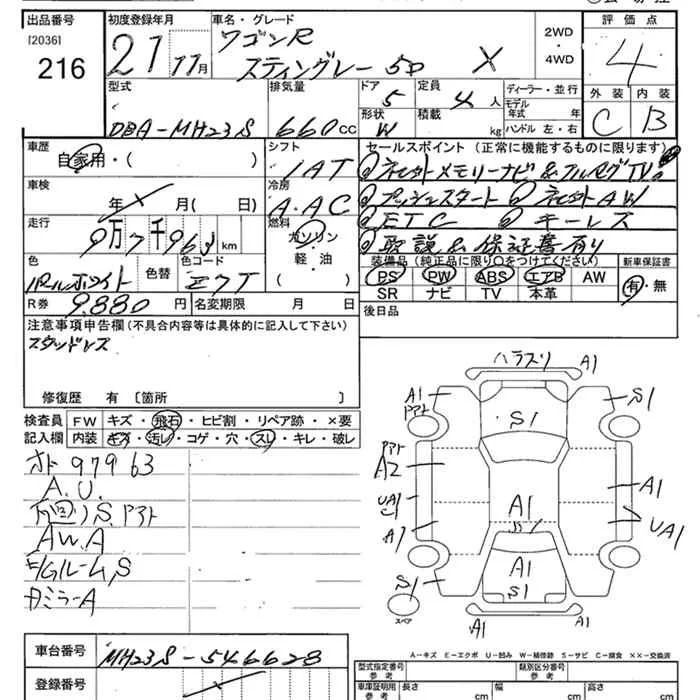 出品番号 初度登録年月 車名・グレード 2WD・4WD 評価点
[2036] 216 21 11月 ワゴンR スティングレー 5D X 4
型式 排気量 ドア 定員 ディーラー・並行 外装 内装
DBA-MH23S 660cc 5 4人 モデル年式 年 C B
形状 W 積載 kg ハンドル 左・右
車歴 シフト セールスポイント (正常に機能するものに限ります)
自家用・( ) IAT ネビオメモリーナビ & フルセグTV
車検 冷房 プッシュスタート AW
年 月( 日) A.AC ETC キーレス
走行 9万7千963km 燃料 ガソリン・軽・油 ( ) 取説 & 保証書有り
色 色替 色コード 装備品 (純正品に限り○をつけてください) 新車保証書
パールホワイト Z7T PS PW ABS エアB AW 有・無
SR ナビ TV 本革
R券 9,880円 名変期限 月 日 後日品
注意事項申告欄 (不具合内容等は具体的に記入して下さい)
スタッドレス
修復歴 有 〔箇所 〕
検査員記入欄 FW キズ・飛石・ヒビ割・リペア跡・×要
内装 キズ・汚レ・コゲ・穴・スレ・キレ・破レ
97963
A.U.
AW.A
E/Gルーム,S
ミラーA
A1 A1
A1 S1
S1
A2
A1 A1
UA1 UA1
A1
A1
S1 S1
スペア
A1 A1
A-キズ E-エクボ U-凹み W-補修跡 S-サビ C-腐食 XX-交換済
車台番号 MH23S-546628
登録番号
型式指定番号 参考 類別区分番号 参考
車庫証明用 参考 長さ cm 幅 cm 高さ cm